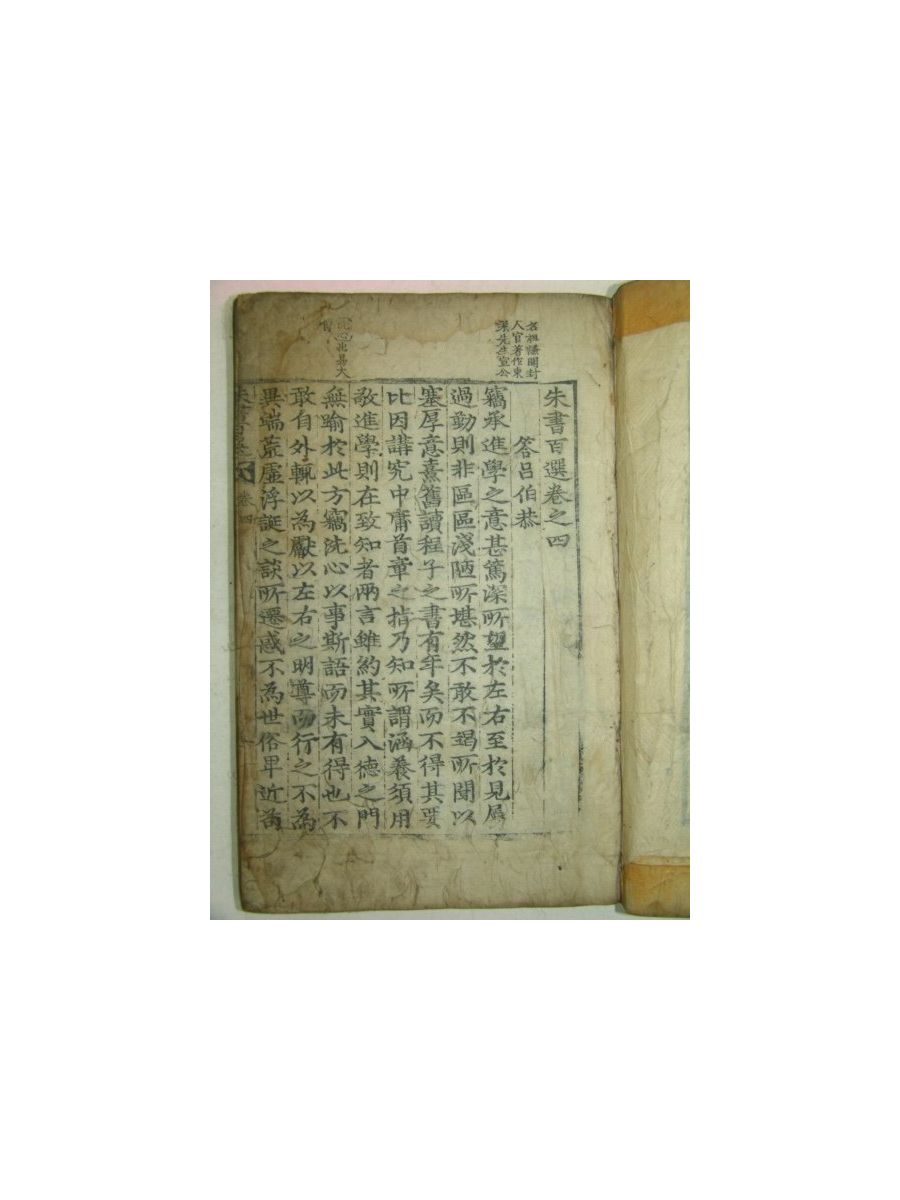 朱書百選卷之四
答呂伯恭
竊承進學之意甚篤深所望於左右至於見屬
過勤則非區區淺陋所堪然不敢不竭所聞以
塞厚意熹舊讀程子之書有年矣而不得其要
比因講究中庸首章之指乃知所謂涵養須用
敬進學則在致知者兩言雖約其實入德之門
無踰於此方竊洗心以事斯語而未有得也不
敢自外輒以為獻以左右之明尊而行之不為
異端荒虛浮誕之談所遷惑不為世俗卑近苟
名祖謙開封
人官著作東
萊先生宣公
洗心出易大
卷四